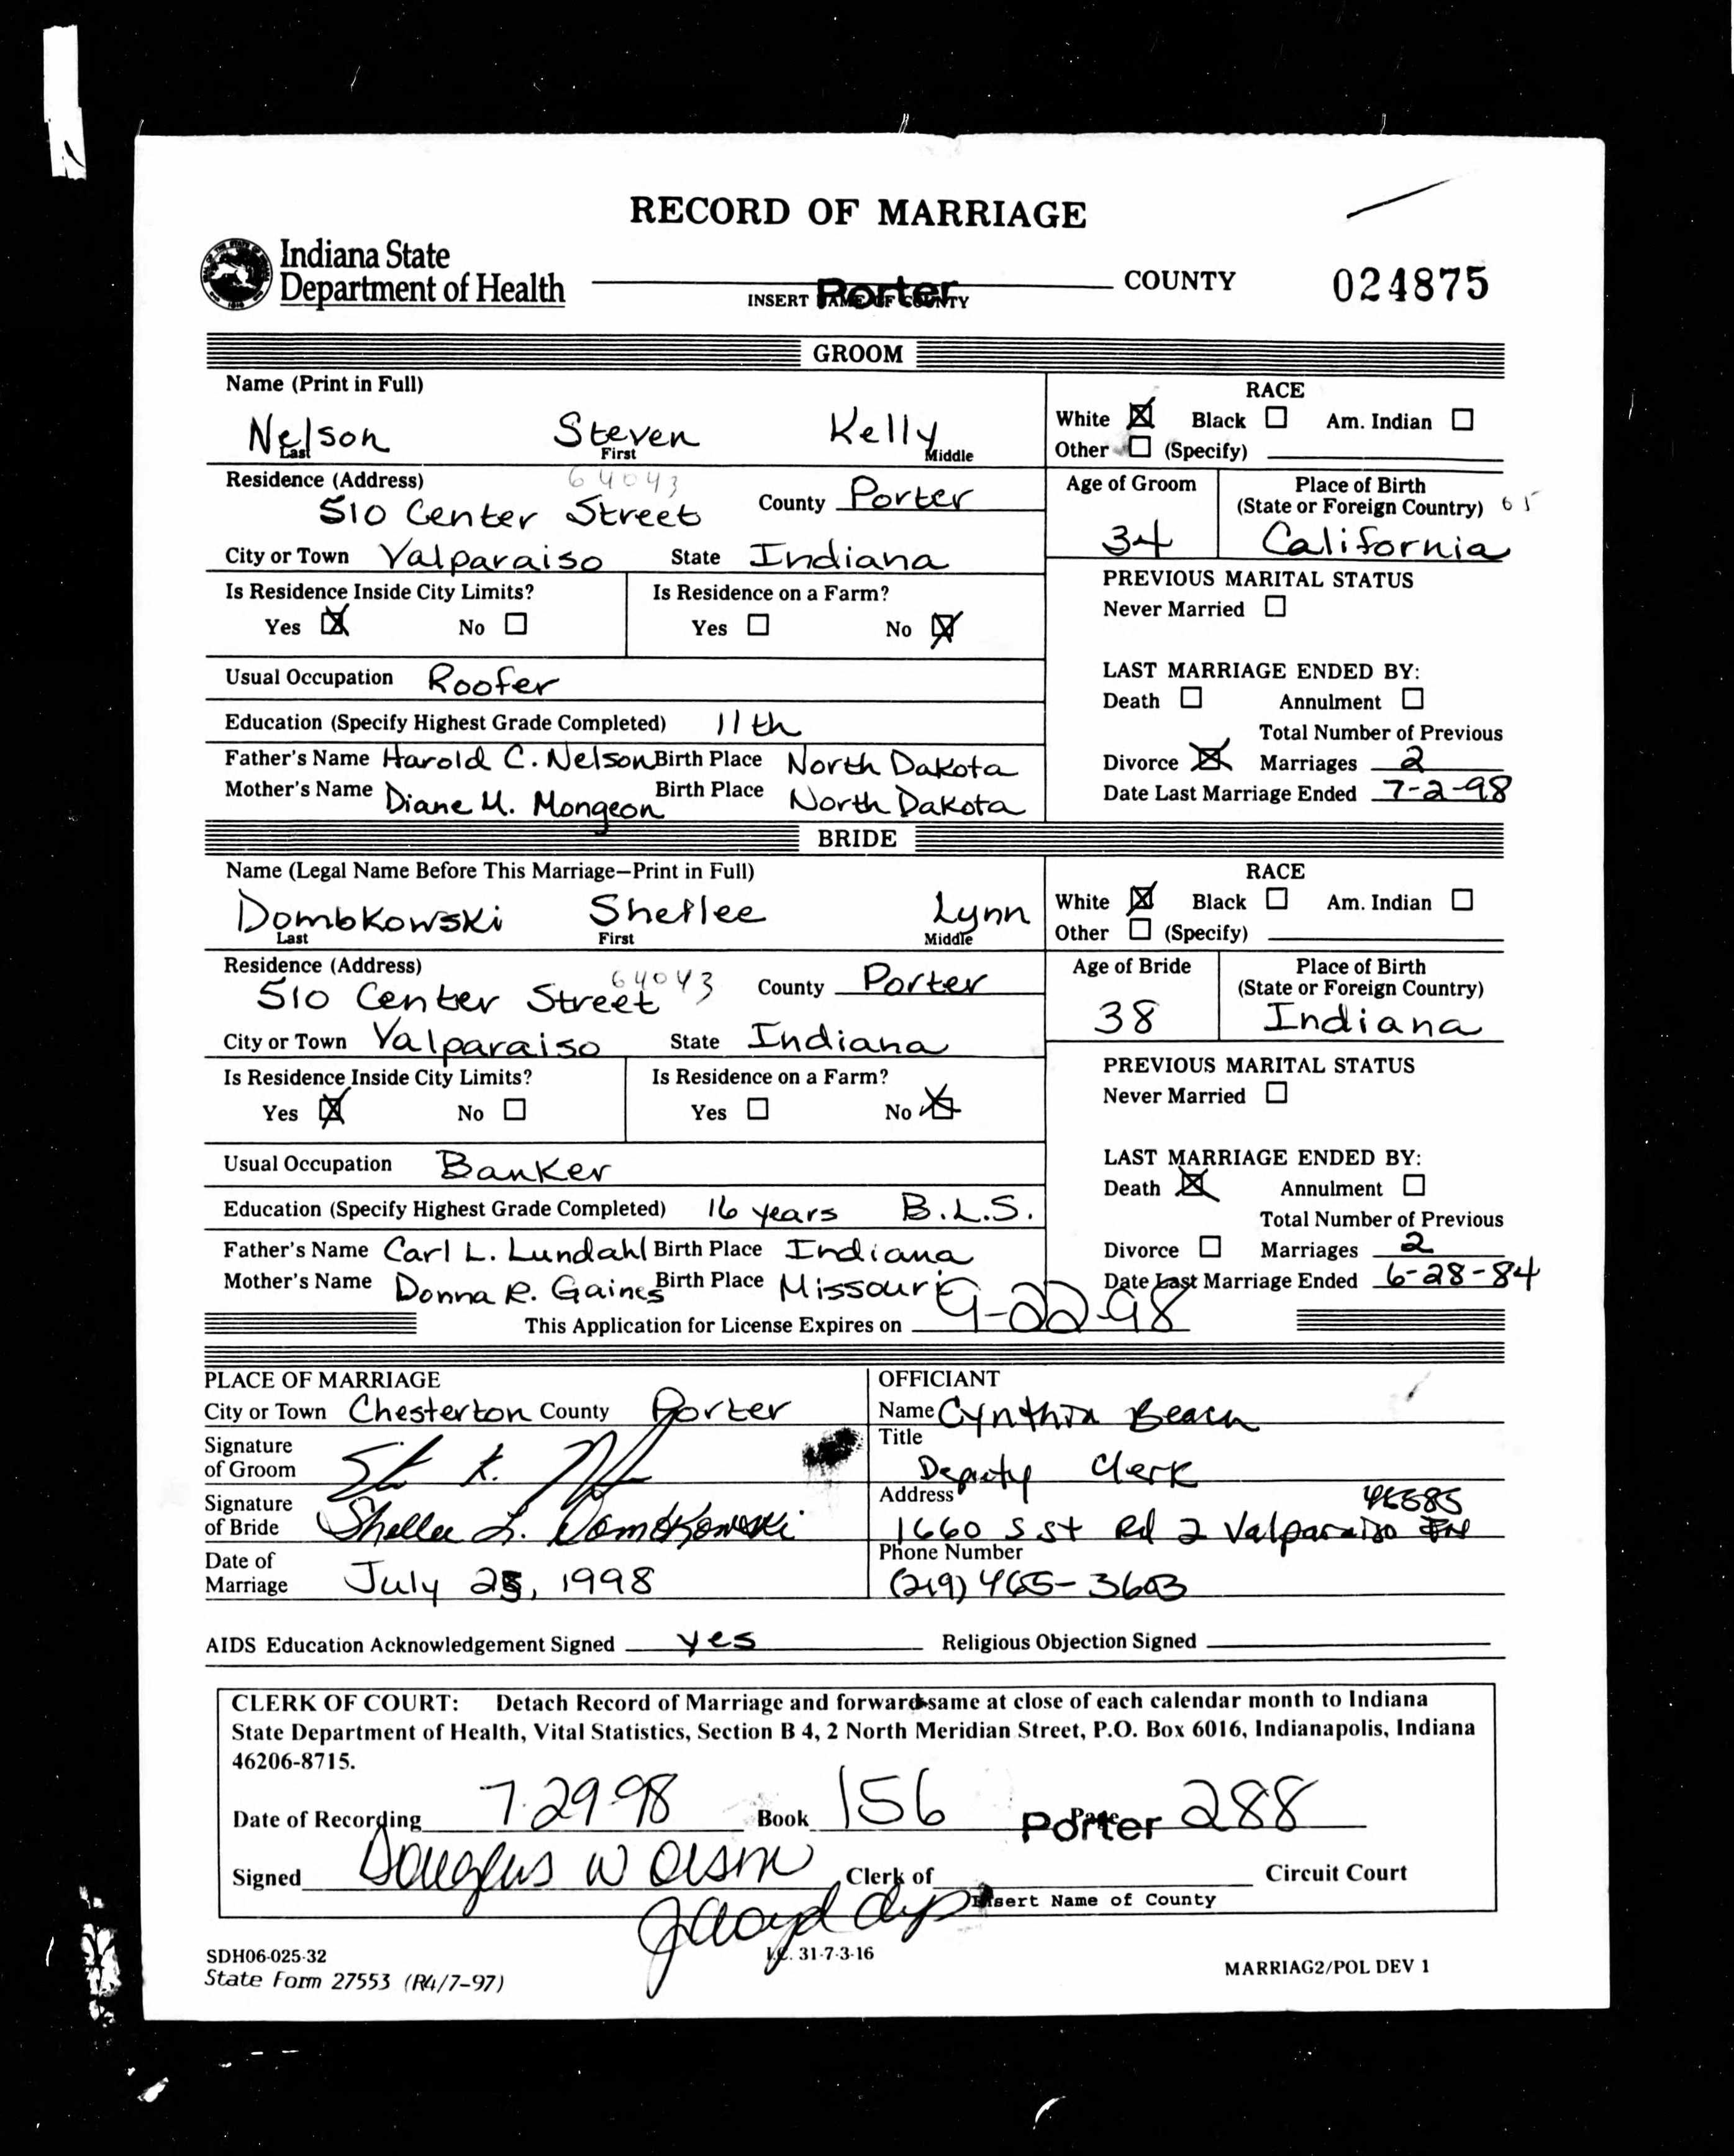 RECORD OF MARRIAGE
Indiana State
Department of Health
Porter COUNTY 024875
INSERT NAME OF COUNTY
GROOM
Name (Print in Full)
Nelson Steven Kelly
Last First Middle
RACE
White ☒ Black ☐ Am. Indian ☐
Other ☐ (Specify)
Residence (Address) 64043
510 Center Street County Porter
Age of Groom
34
Place of Birth
(State or Foreign Country) 65
California
City or Town Valparaiso State Indiana
Is Residence Inside City Limits? Is Residence on a Farm?
Yes ☒ No ☐ Yes ☐ No ☒
PREVIOUS MARITAL STATUS
Never Married ☐
Usual Occupation Roofer
Education (Specify Highest Grade Completed) 11th
Father's Name Harold C. Nelson Birth Place North Dakota
Mother's Name Diane M. Mongeon Birth Place North Dakota
LAST MARRIAGE ENDED BY:
Death ☐ Annulment ☐
Total Number of Previous
Divorce ☒ Marriages 2
Date Last Marriage Ended 7-2-98
BRIDE
Name (Legal Name Before This Marriage—Print in Full)
Dombkowski Shellee Lynn
Last First Middle
RACE
White ☒ Black ☐ Am. Indian ☐
Other ☐ (Specify)
Residence (Address) 64043
510 Center Street County Porter
Age of Bride
38
Place of Birth
(State or Foreign Country)
Indiana
City or Town Valparaiso State Indiana
Is Residence Inside City Limits? Is Residence on a Farm?
Yes ☒ No ☐ Yes ☐ No ☒
PREVIOUS MARITAL STATUS
Never Married ☐
Usual Occupation Banker
Education (Specify Highest Grade Completed) 16 years B.L.S.
Father's Name Carl L. Lundahl Birth Place Indiana
Mother's Name Donna R. Gaines Birth Place Missouri
LAST MARRIAGE ENDED BY:
Death ☒ Annulment ☐
Total Number of Previous
Divorce ☐ Marriages 2
Date Last Marriage Ended 6-28-84
This Application for License Expires on 9-22-98
PLACE OF MARRIAGE
City or Town Chesterton County Porter
Signature
of Groom
Signature
of Bride Shellee L. Dombkowski
Date of
Marriage July 25, 1998
OFFICIANT
Name Cynthia Beach
Title
Deputy Clerk
Address 46385
1660 S St Rd 2 Valparaiso IN
Phone Number
(219) 465-3603
AIDS Education Acknowledgement Signed yes Religious Objection Signed
CLERK OF COURT: Detach Record of Marriage and forward same at close of each calendar month to Indiana
State Department of Health, Vital Statistics, Section B 4, 2 North Meridian Street, P.O. Box 6016, Indianapolis, Indiana
46206-8715.
Date of Recording 7-29-98 Book 156 Page 288
Porter
Signed Douglas W Olson Clerk of Circuit Court
Insert Name of County
SDH06-025-32 I.C. 31-7-3-16
State Form 27553 (R4/7-97) MARRIAG2/POL DEV 1